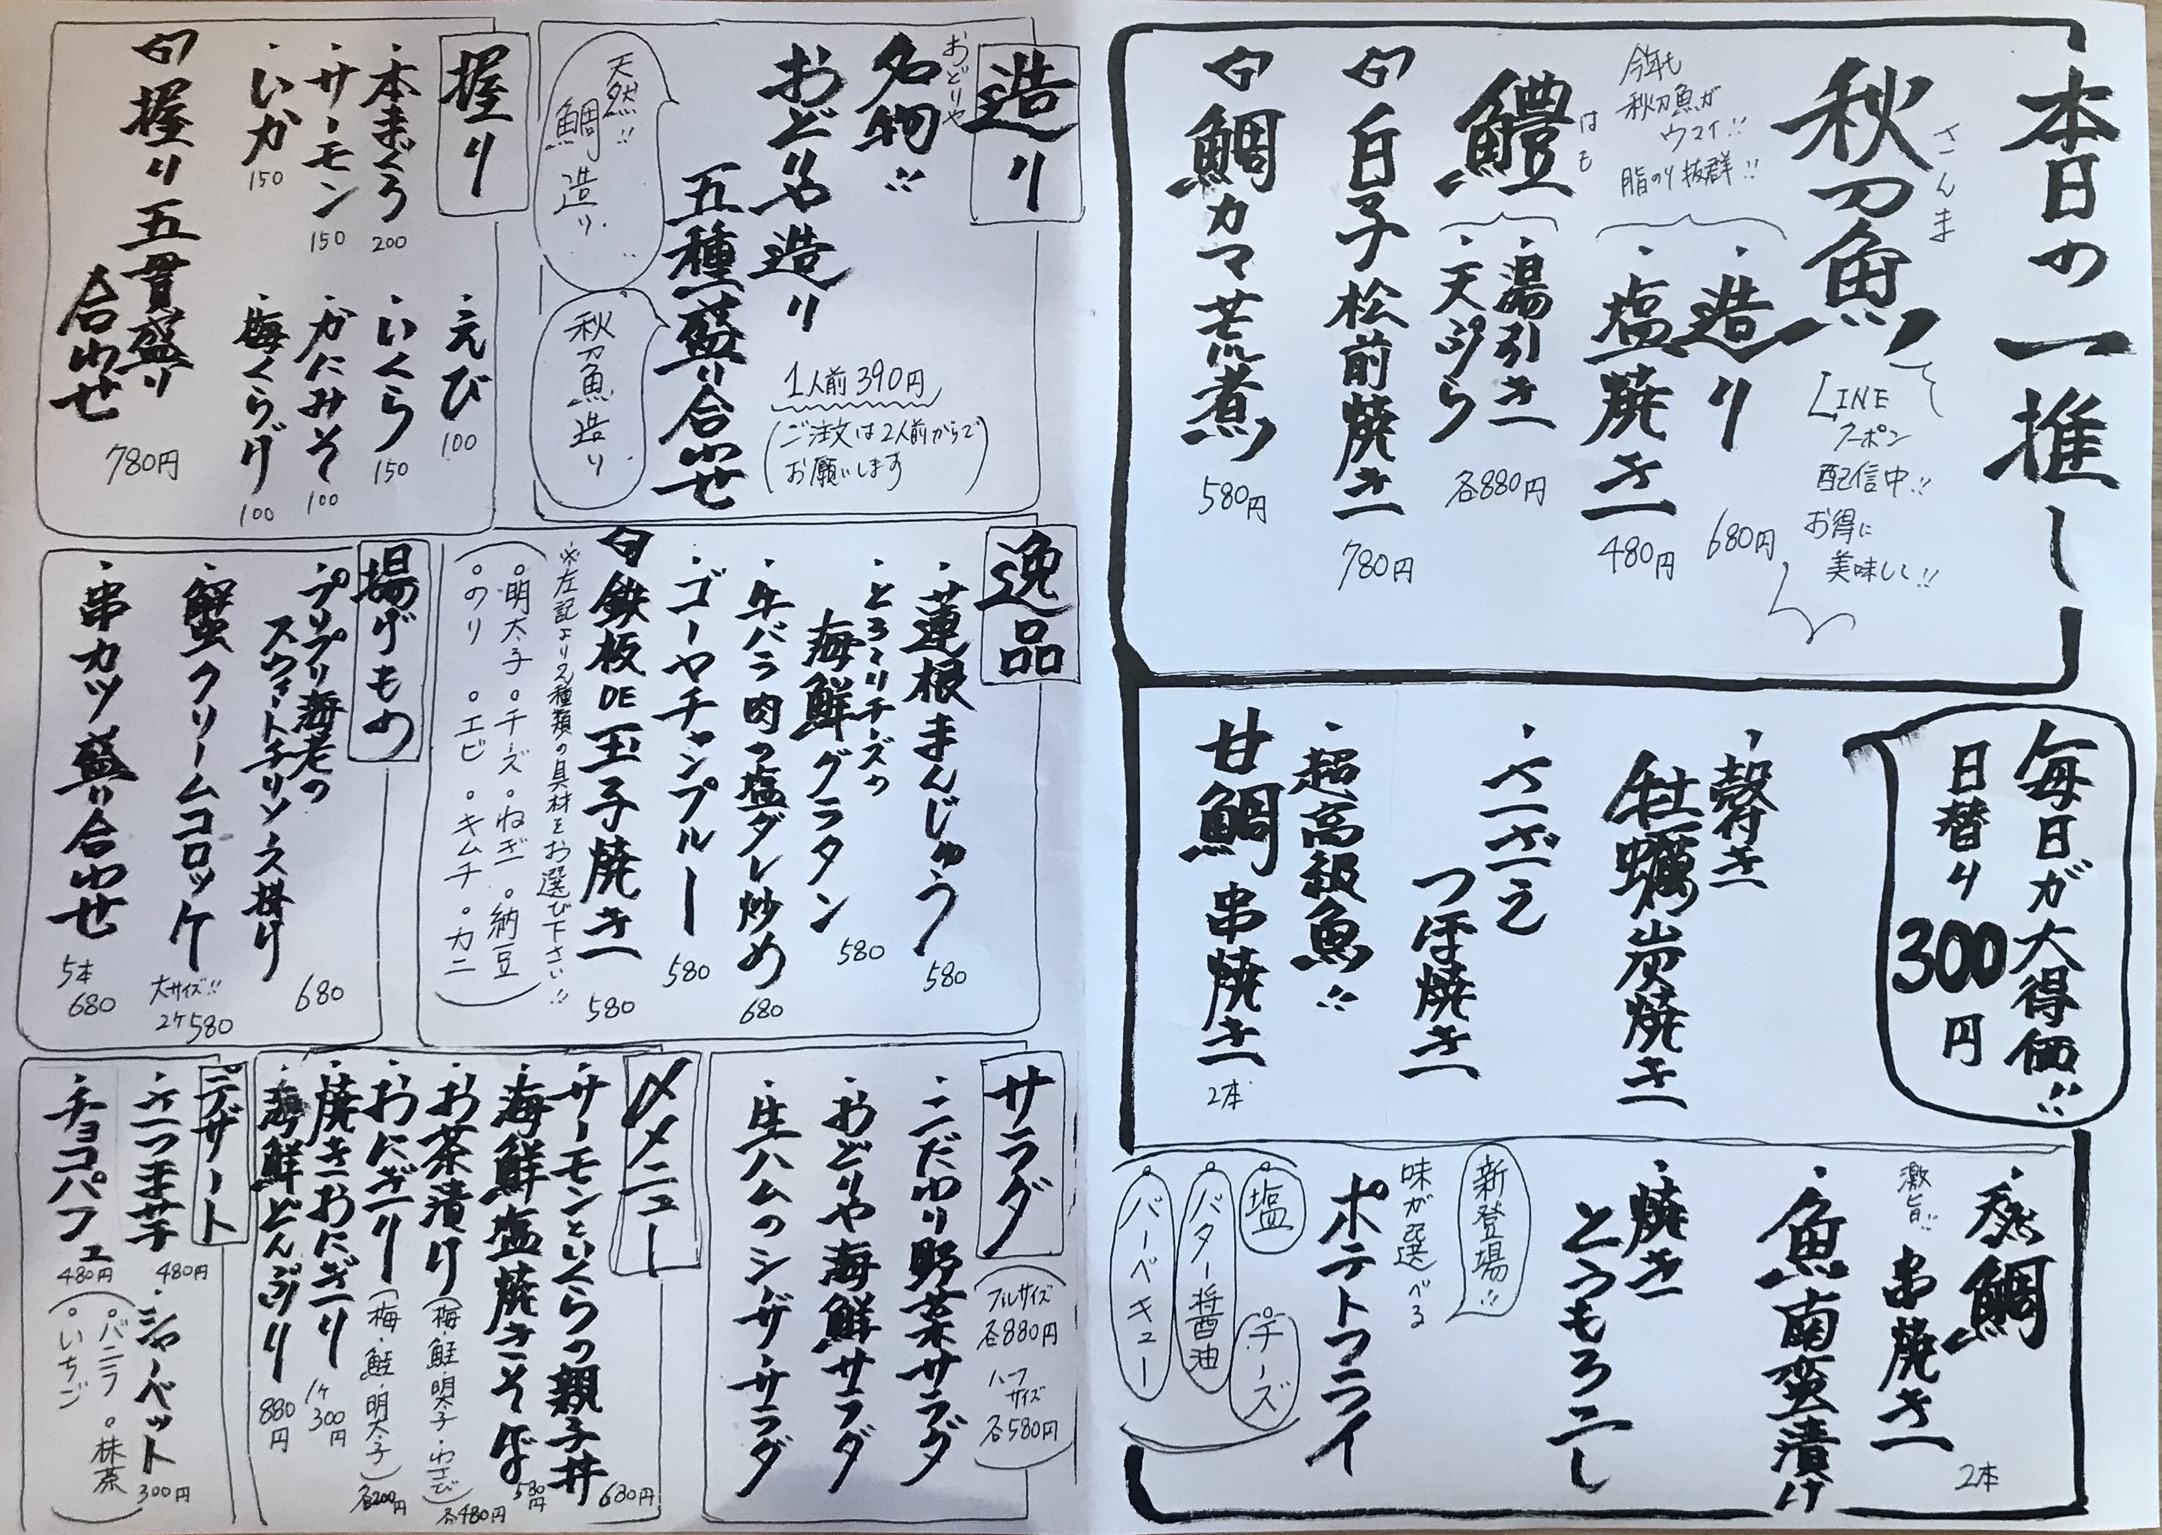 本日の一推し
さんま
秋刀魚
今年も
秋刀魚が
ウマイ!!
脂のり抜群!!
・造り 680円
・塩焼き 480円
LINE
クーポン
配信中!!
お得に
美味しく!!
はも
鱧
・湯引き
・天ぷら
各880円
白子松前焼き 780円
鯛カマ荒煮 580円
毎日が大得価!!
日替り300円
・殻付き
牡蠣炭焼き
・さざえ
つぼ焼き
・超高級魚!!
甘鯛串焼き 2本
・天然鯛
激旨!!
串焼き 2本
・魚南蛮漬け
・焼き
とうもろこし
新登場!!
味が選べる
ポテトフライ
。塩
。チーズ
。バター醤油
。バーベキュー
造り
おどりや
名物!!
おどりや造り
五種盛り合わせ
1人前390円
(ご注文は2人前からで
お願いします)
天然!!
鯛造り
秋刀魚造り
握り
・本まぐろ 200
・サーモン 150
・いか 150
・えび 100
・いくら 150
・かにみそ 100
・梅くらげ 100
握り五貫盛り
合わせ
780円
逸品
・蓮根まんじゅう 580
・とろ〜りチーズの
海鮮グラタン 580
・牛バラ肉の塩ダレ炒め 680
・ゴーヤチャンプルー 580
鉄板DE玉子焼き 580
※左記より2種類の具材をお選び下さい!!
(。明太子。チーズ。ねぎ。納豆
。のり。エビ。キムチ。カニ)
揚げもの
・プリプリ海老の
スウィートチリソース掛け 680
・蟹クリームコロッケ
大サイズ!!
2ケ580
・串カツ盛り合わせ
5本
680
サラダ
(フルサイズ
各880円
ハーフ
サイズ
各580円)
・こだわり野菜サラダ
・おどりや海鮮サラダ
・生ハムのシーザーサラダ
〆メニュー
・サーモンといくらの親子丼 680円
・海鮮塩焼きそば 580円
・お茶漬け(梅・鮭・明太子・わさび) 各480円
・おにぎり(梅・鮭・明太子) 各200円
・焼きおにぎり 1ケ300円
・海鮮どんぶり 880円
デザート
・さつま芋 480円
・シャーベット 300円
・チョコパフェ 480円
(。バニラ。抹茶
。いちご)